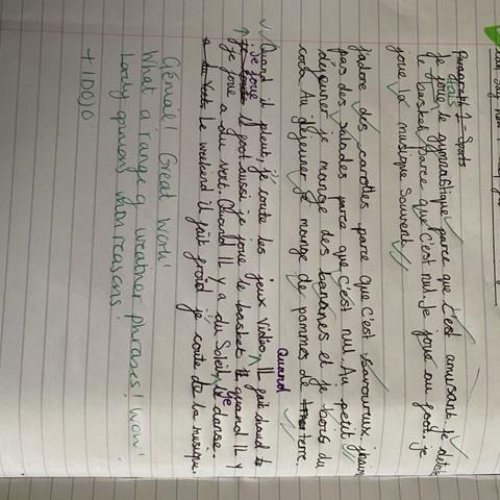 Paragraph 1 - Sports
fais
Je joue le gymnastique parce que C'est amusant Je déteste
le basket parce que C'est nul. Je joue au foot. Je
joue la musique Souvent
J'adore des carottes parce que C'est savoureux.
pas des salades parce que C'est nul. Au petit
déjeuner je mange des bananes et je bois du
coca. Au déjeuner Je mange de pommes de terre.
Quand
Quand il pleut, je joute les jeux video Il fait chaud
Je joue le foot aussi je joue le basket quand Il y
je joue a du vent. Quand Il y a du Soleil, je danse.
Le weekend il fait froid je coute de la musique.
Génial! Great work!
What a range of weather phrases! Wow!
Lovely opinions when reasons!
+10DoJo